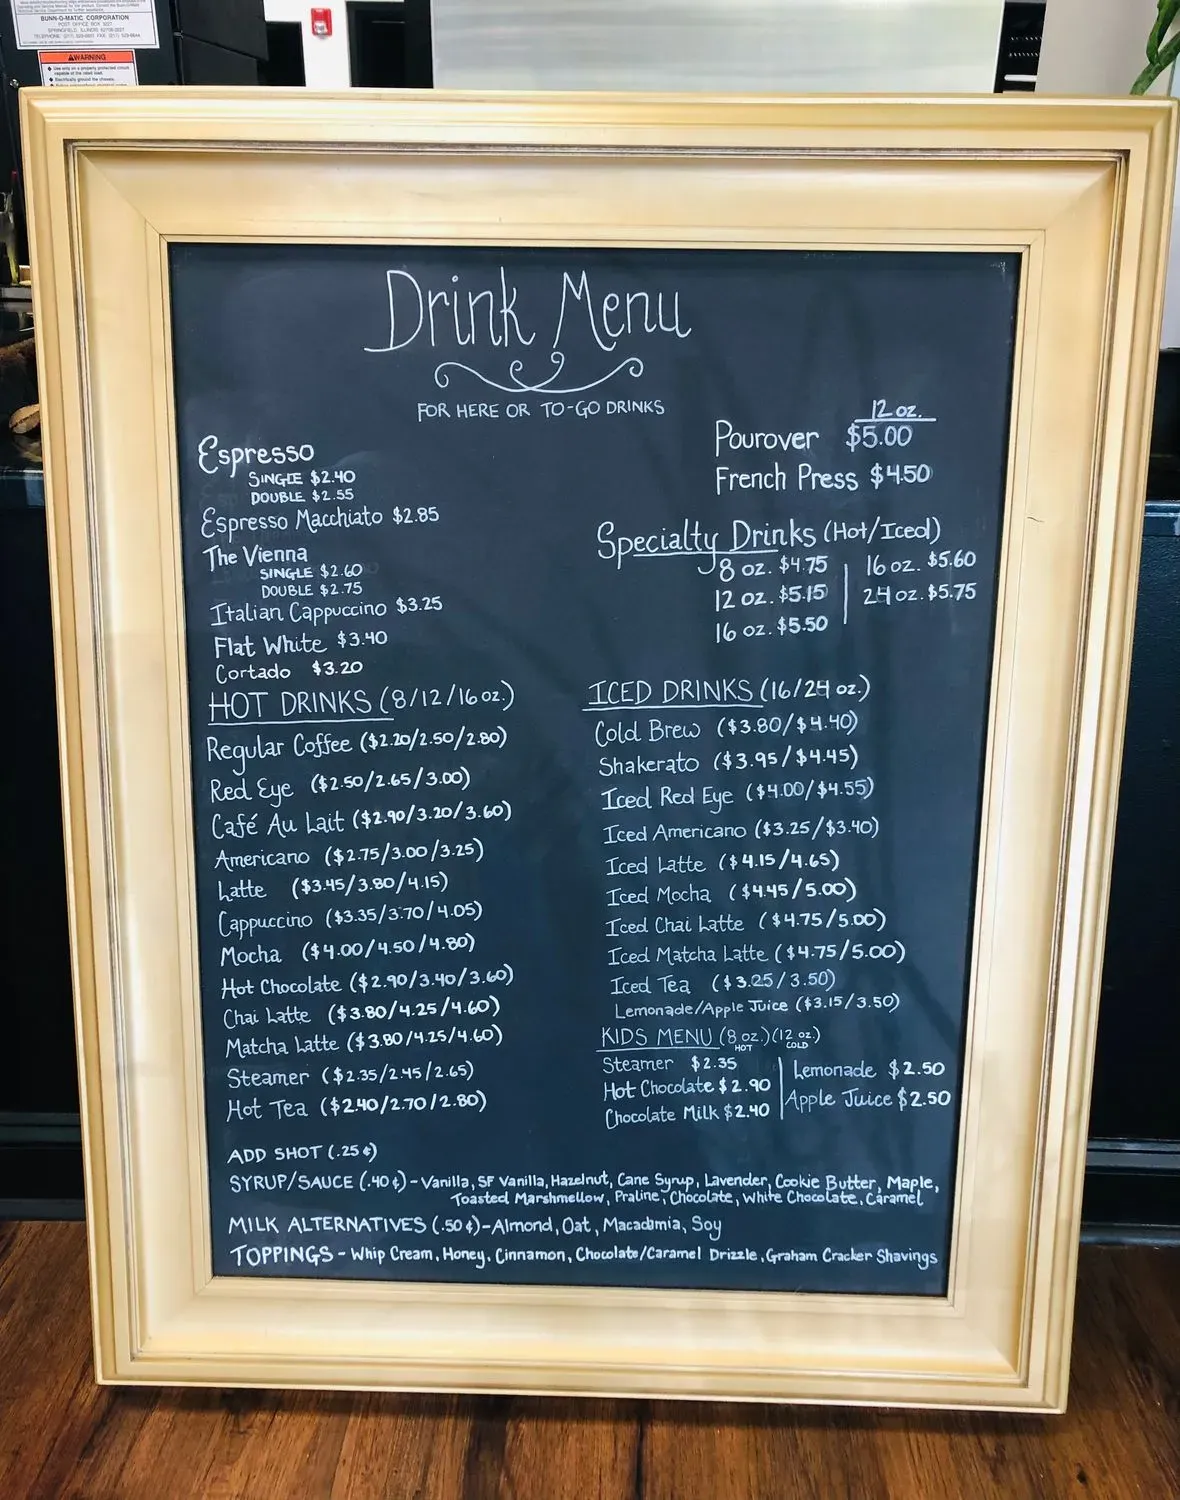 BUNN-O-MATIC CORPORATION
POST OFFICE BOX 3227
SPRINGFIELD, ILLINOIS 62708-3227
WARNING
Use only on a properly protected circuit
capable of the rated load.
Electrically ground the chassis.
Drink Menu
FOR HERE OR TO-GO DRINKS
Espresso
SINGLE $2.40
DOUBLE $2.55
Espresso Macchiato $2.85
The Vienna
SINGLE $2.60
DOUBLE $2.75
Italian Cappuccino $3.25
Flat White $3.40
Cortado $3.20
12 oz.
Pourover $5.00
French Press $4.50
Specialty Drinks (Hot/Iced)
8 oz. $4.75 | 16 oz. $5.60
12 oz. $5.15 | 24 oz. $5.75
16 oz. $5.50
HOT DRINKS (8/12/16 oz.)
Regular Coffee ($2.20/2.50/2.80)
Red Eye ($2.50/2.65/3.00)
Café Au Lait ($2.90/3.20/3.60)
Americano ($2.75/3.00/3.25)
Latte ($3.45/3.80/4.15)
Cappuccino ($3.35/3.70/4.05)
Mocha ($4.00/4.50/4.80)
Hot Chocolate ($2.90/3.40/3.60)
Chai Latte ($3.80/4.25/4.60)
Matcha Latte ($3.80/4.25/4.60)
Steamer ($2.35/2.45/2.65)
Hot Tea ($2.40/2.70/2.80)
ICED DRINKS (16/24 oz.)
Cold Brew ($3.80/$4.40)
Shakerato ($3.95/$4.45)
Iced Red Eye ($4.00/$4.55)
Iced Americano ($3.25/$3.40)
Iced Latte ($4.15/4.65)
Iced Mocha ($4.45/5.00)
Iced Chai Latte ($4.75/5.00)
Iced Matcha Latte ($4.75/5.00)
Iced Tea ($3.25/3.50)
Lemonade/Apple Juice ($3.15/3.50)
KIDS MENU (8 oz.)(12 oz.)
HOT COLD
Steamer $2.35 | Lemonade $2.50
Hot Chocolate $2.90 | Apple Juice $2.50
Chocolate Milk $2.40
ADD SHOT (.25¢)
SYRUP/SAUCE (.40¢)-Vanilla, SF Vanilla, Hazelnut, Cane Syrup, Lavender, Cookie Butter, Maple,
Toasted Marshmellow, Praline, Chocolate, White Chocolate, Caramel
MILK ALTERNATIVES (.50¢)-Almond, Oat, Macadamia, Soy
TOPPINGS - Whip Cream, Honey, Cinnamon, Chocolate/Caramel Drizzle, Graham Cracker Shavings